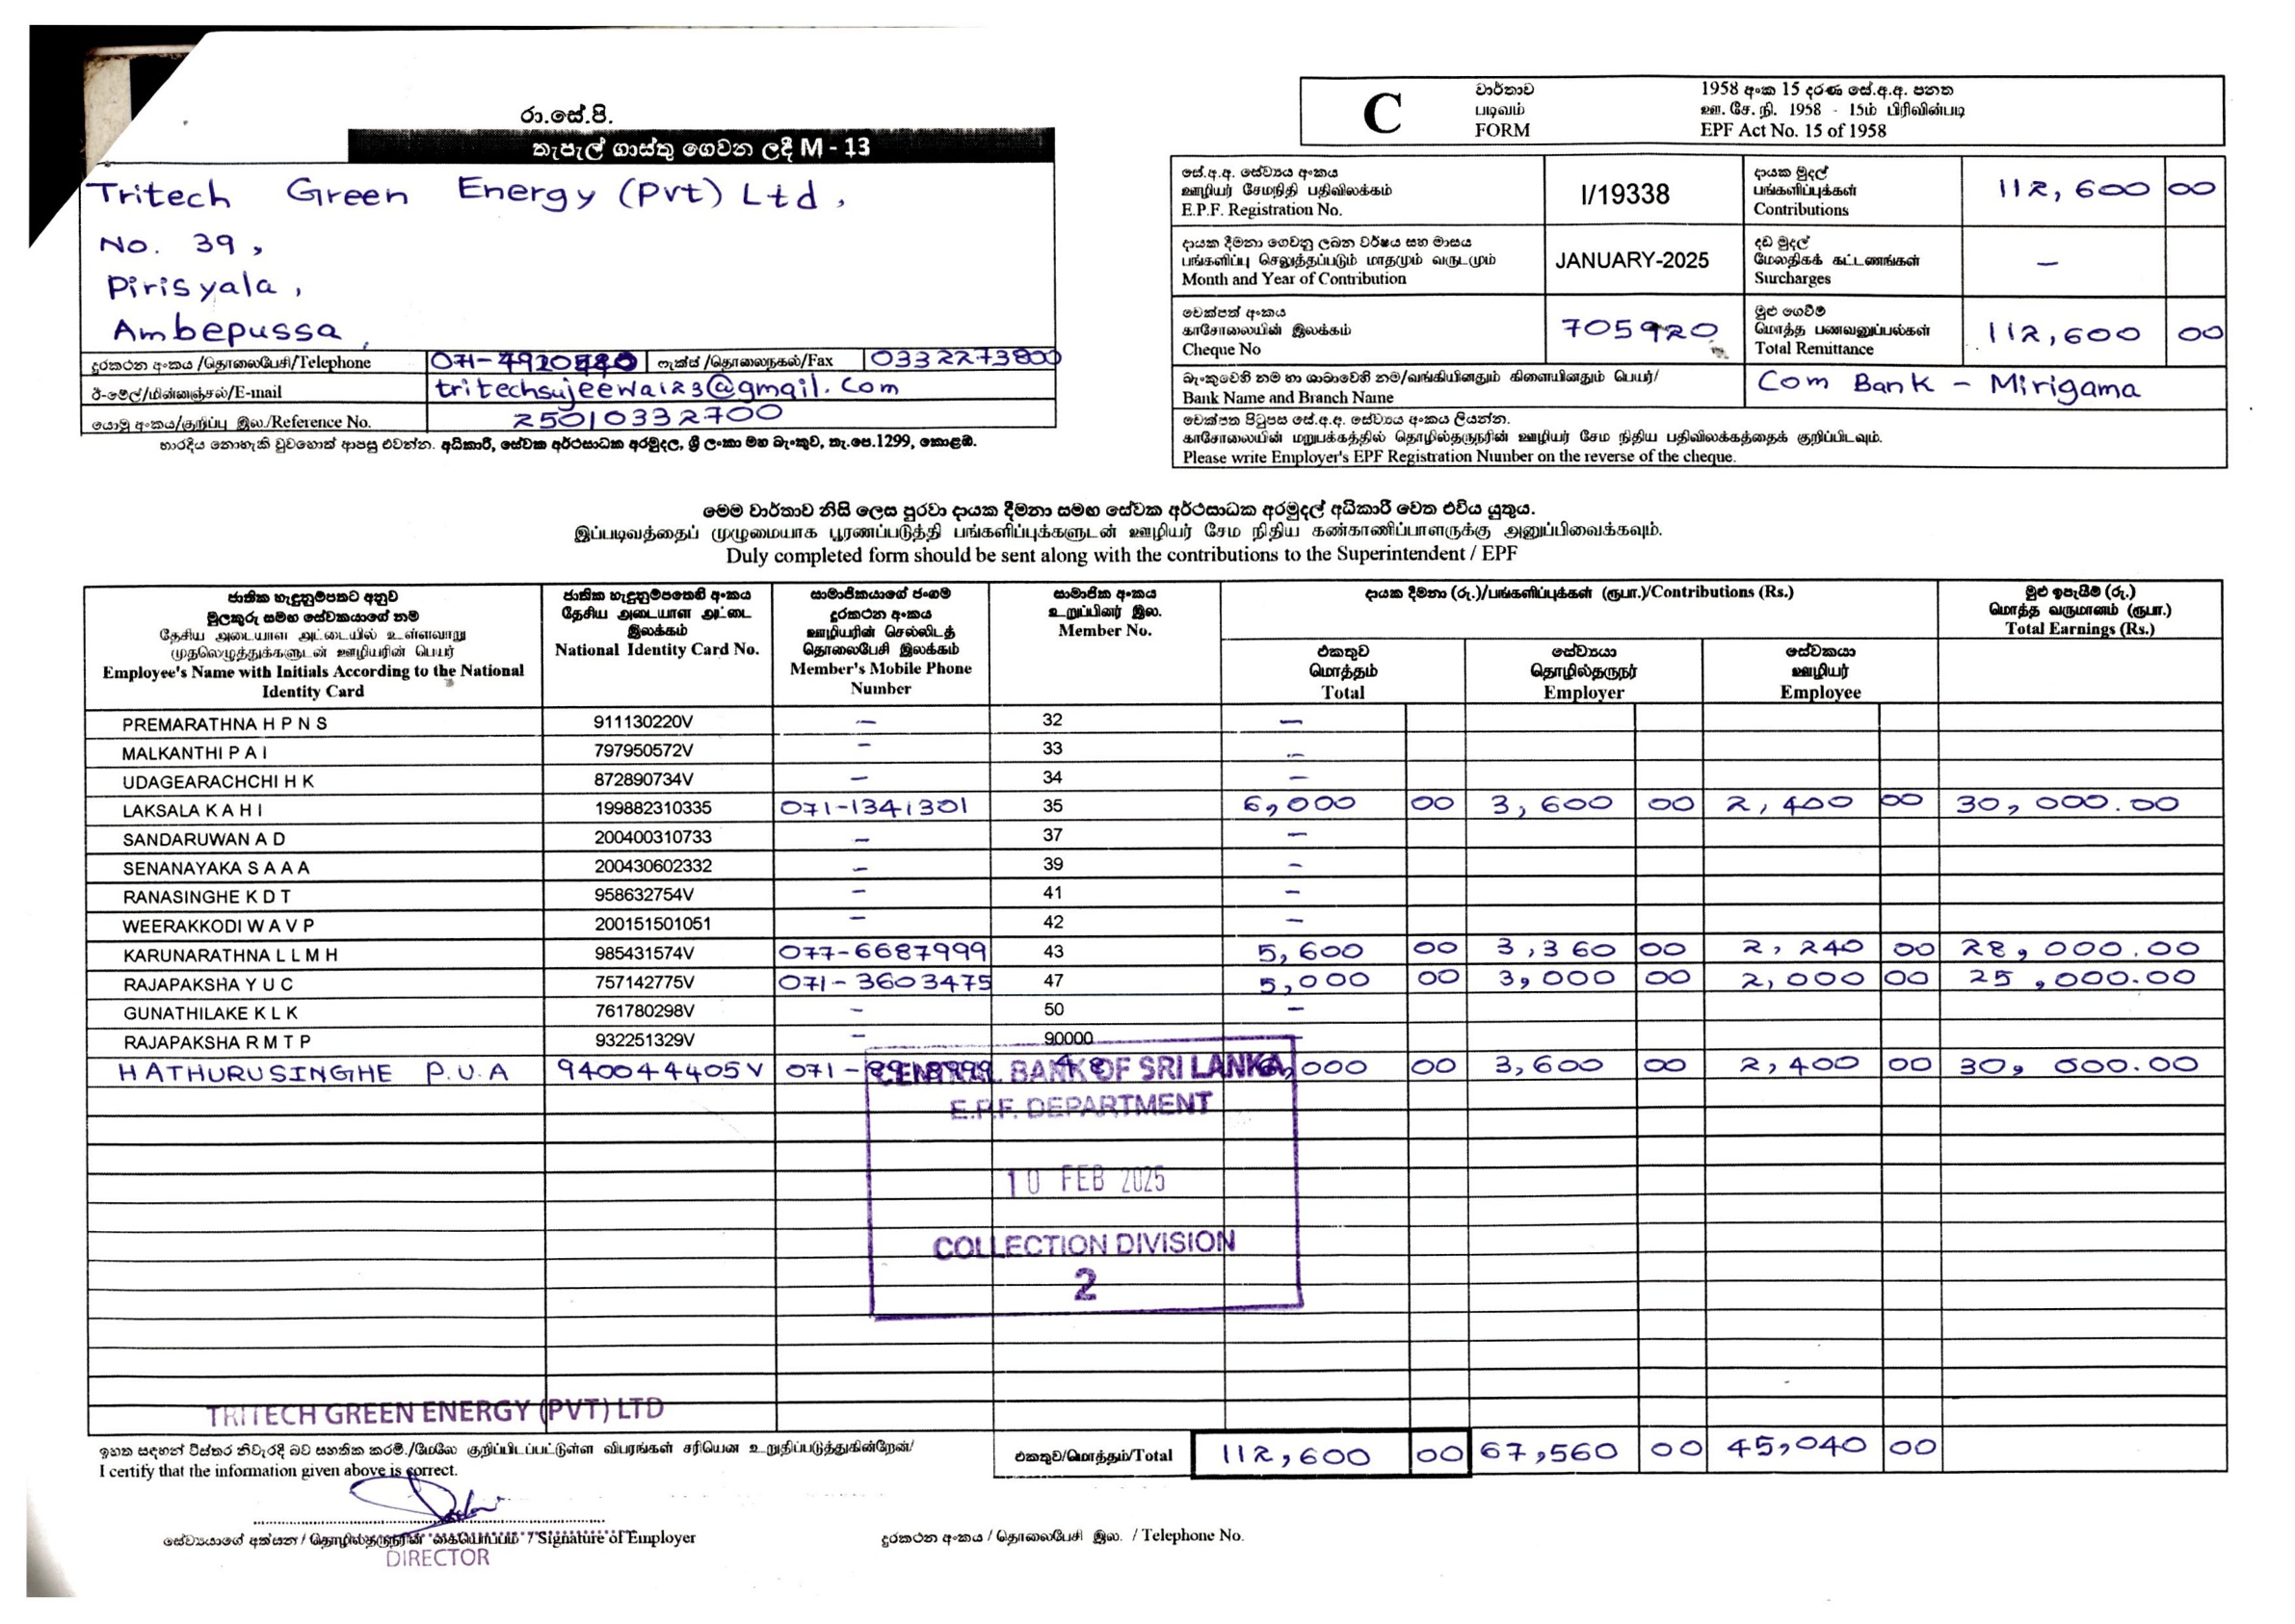 රා.සේ.පි.
තැපැල් ගාස්තු ගෙවන ලදී M - 13
Tritech Green Energy (Pvt) Ltd,
No. 39,
Pirisyala,
Ambepussa,
දුරකථන අංකය/தொலைபேசி/Telephone
ෆැක්ස්/தொலைநகல்/Fax 0332273800
ඊ-මේල්/மின்னஞ்சல்/E-mail tritechsujeewa123@gmail.com
යොමු අංකය/குறிப்பு இல./Reference No. 25010332700
භාරදිය නොහැකි වුවහොත් ආපසු එවන්න. අධිකාරී, සේවක අර්ථසාධක අරමුදල, ශ්‍රී ලංකා මහ බැංකුව, තැ.පෙ.1299, කොළඹ.
C
වාර්තාව
படிவம்
FORM
1958 අංක 15 දරණ සේ.අ.අ. පනත
ஊ. சே. நி. 1958 - 15ம் பிரிவின்படி
EPF Act No. 15 of 1958
සේ.අ.අ. සේව්‍යය අංකය
ஊழியர் சேமநிதி பதிவிலக்கம்
E.P.F. Registration No.
I/19338
දායක මුදල්
பங்களிப்புக்கள்
Contributions
112,600 00
දායක දීමනා ගෙවනු ලබන වර්ෂය සහ මාසය
பங்களிப்பு செலுத்தப்படும் மாதமும் வருடமும்
Month and Year of Contribution
JANUARY-2025
දඩ මුදල්
மேலதிகக் கட்டணங்கள்
Surcharges
–
චෙක්පත් අංකය
காசோலையின் இலக்கம்
Cheque No
705920
මුළු ගෙවීම්
மொத்த பணவனுப்பல்கள்
Total Remittance
112,600 00
බැංකුවෙහි නම හා ශාඛාවෙහි නම/வங்கியினதும் கிளையினதும் பெயர்/
Bank Name and Branch Name
Com Bank – Mirigama
චෙක්පත පිටුපස සේ.අ.අ. සේව්‍යය අංකය ලියන්න.
காசோலையின் மறுபக்கத்தில் தொழில்தருநரின் ஊழியர் சேம நிதிய பதிவிலக்கத்தைக் குறிப்பிடவும்.
Please write Employer's EPF Registration Number on the reverse of the cheque.
මෙම වාර්තාව නිසි ලෙස පුරවා දායක දීමනා සමඟ සේවක අර්ථසාධක අරමුදල් අධිකාරී වෙත එවිය යුතුය.
இப்படிவத்தைப் முழுமையாக பூரணப்படுத்தி பங்களிப்புக்களுடன் ஊழியர் சேம நிதிய கண்காணிப்பாளருக்கு அனுப்பிவைக்கவும்.
Duly completed form should be sent along with the contributions to the Superintendent / EPF
ජාතික හැඳුනුම්පතට අනුව
මුලකුරු සමඟ සේවකයාගේ නම
தேசிய அடையாள அட்டையில் உள்ளவாறு
முதலெழுத்துக்களுடன் ஊழியரின் பெயர்
Employee's Name with Initials According to the National
Identity Card
ජාතික හැඳුනුම්පතෙහි අංකය
தேசிய அடையாள அட்டை
இலக்கம்
National Identity Card No.
සාමාජිකයාගේ ජංගම
දුරකථන අංකය
ஊழியரின் செல்லிடத்
தொலைபேசி இலக்கம்
Member's Mobile Phone
Number
සාමාජික අංකය
உறுப்பினர் இல.
Member No.
දායක දීමනා (රු.)/பங்களிப்புக்கள் (ரூபா.)/Contributions (Rs.)
එකතුව
மொத்தம்
Total
සේව්‍යයා
தொழில்தருநர்
Employer
සේවකයා
ஊழியர்
Employee
මුළු ඉපැයීම් (රු.)
மொத்த வருமானம் (ரூபா.)
Total Earnings (Rs.)
PREMARATHNA H P N S 911130220V – 32 –
MALKANTHI P A I 797950572V – 33 –
UDAGEARACHCHI H K 872890734V – 34 –
LAKSALA K A H I 199882310335 071-1341301 35 6,000 00 3,600 00 2,400 00 30,000.00
SANDARUWAN A D 200400310733 – 37 –
SENANAYAKA S A A A 200430602332 – 39 –
RANASINGHE K D T 958632754V – 41 –
WEERAKKODI W A V P 200151501051 – 42 –
KARUNARATHNA L L M H 985431574V 077-6687999 43 5,600 00 3,360 00 2,240 00 28,000.00
RAJAPAKSHA Y U C 757142775V 071-3603475 47 5,000 00 3,000 00 2,000 00 25,000.00
GUNATHILAKE K L K 761780298V – 50 –
RAJAPAKSHA R M T P 932251329V – 90000
HATHURUSINGHE P.U.A 940044405V 071- 48 6,000 00 3,600 00 2,400 00 30,000.00
CENTRAL BANK OF SRI LANKA
E.P.F. DEPARTMENT
10 FEB 2025
COLLECTION DIVISION
2
TRITECH GREEN ENERGY (PVT) LTD
ඉහත සඳහන් විස්තර නිවැරදි බව සහතික කරමි./மேலே குறிப்பிடப்பட்டுள்ள விபரங்கள் சரியென உறுதிப்படுத்துகின்றேன்/
I certify that the information given above is correct.
එකතුව/மொத்தம்/Total 112,600 00 67,560 00 45,040 00
සේව්‍යයාගේ අත්සන / தொழில்தருநரின் கையொப்பம் / Signature of Employer
DIRECTOR
දුරකථන අංකය / தொலைபேசி இல. / Telephone No.